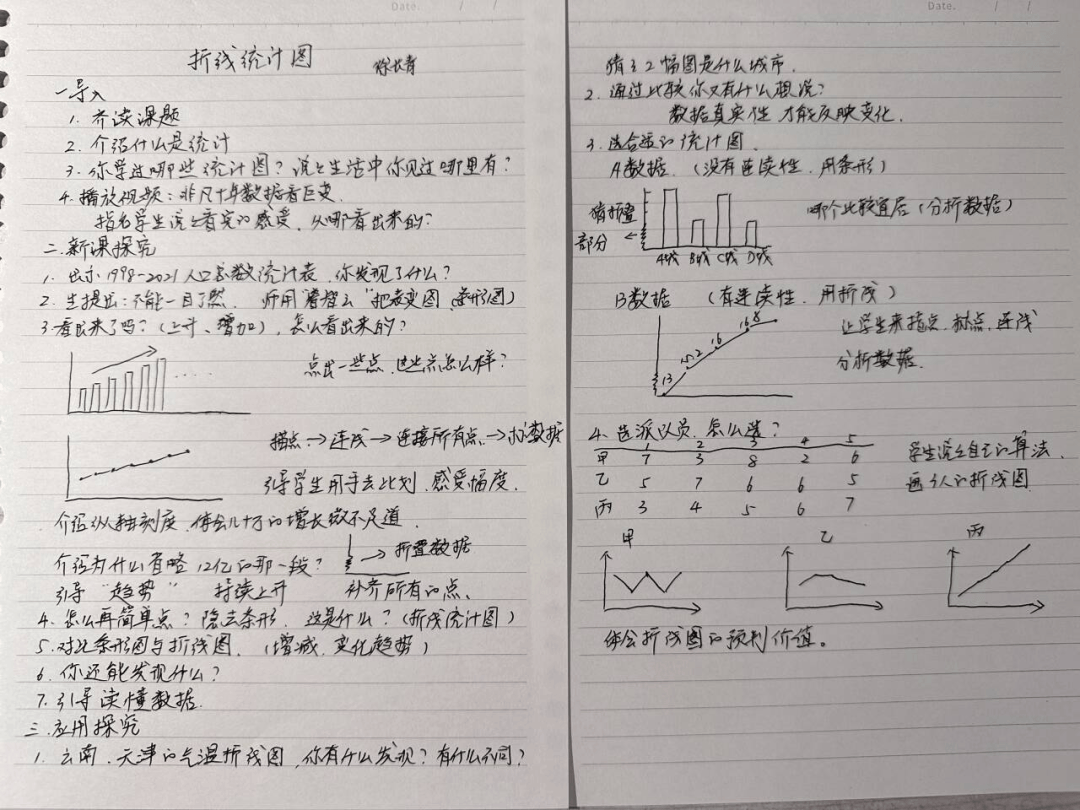 Date. / /
折线统计图 徐长青
一导入
1. 齐读课题
2. 介绍什么是统计
3. 你学过哪些统计图？说说生活中你见过哪里有？
4. 播放视频：非凡十年数据看巨变.
指名学生说说看完的感受，从哪看出来的？
二.新课探究
1. 出示1998-2021人口总数统计表，你发现了什么？
2. 生提出：不能一目了然. 师用"把表变图（条形图）
3.看出来了吗？（上升、增加），怎么看出来的？
点出一些点，这些点怎么样？
描点→连线→连接所有点→标数据
引导学生用手去比划，感受幅度.
介绍纵轴刻度，体会几十万的增长微不足道
介绍为什么省略12亿的那一段？ →折叠数据
引导"趋势" 持续上升 补齐所有的点.
4. 怎么再简单点？隐去条形，这是什么？（折线统计图）
5.对比条形图与折线图.（增减，变化趋势）
6.你还能发现什么？
7.引导读懂数据.
三.应用探究
1. 云南、天津的气温折线图，你有什么发现？有什么不同？
Date. / /
猜这2幅图是什么城市.
2. 通过比较你又有什么想说？
数据真实性 才能反映变化.
3. 选合适的统计图.
A数据.（没有连续性，用条形）
猜折叠
部分 ←
哪个比较宜居（分析数据）
A城 B城 C城 D城
B数据 （有连续性，用折线）
13 15.2 16 16.8
让学生来指点，描点，连线
分析数据.
4. 选派队员，怎么选？
1 2 3 4 5
甲 7 3 8 2 6
乙 5 7 6 6 5
丙 3 4 5 6 7
学生说说自己的算法.
画3人的折线图
甲 乙 丙
体会折线图的预判价值。